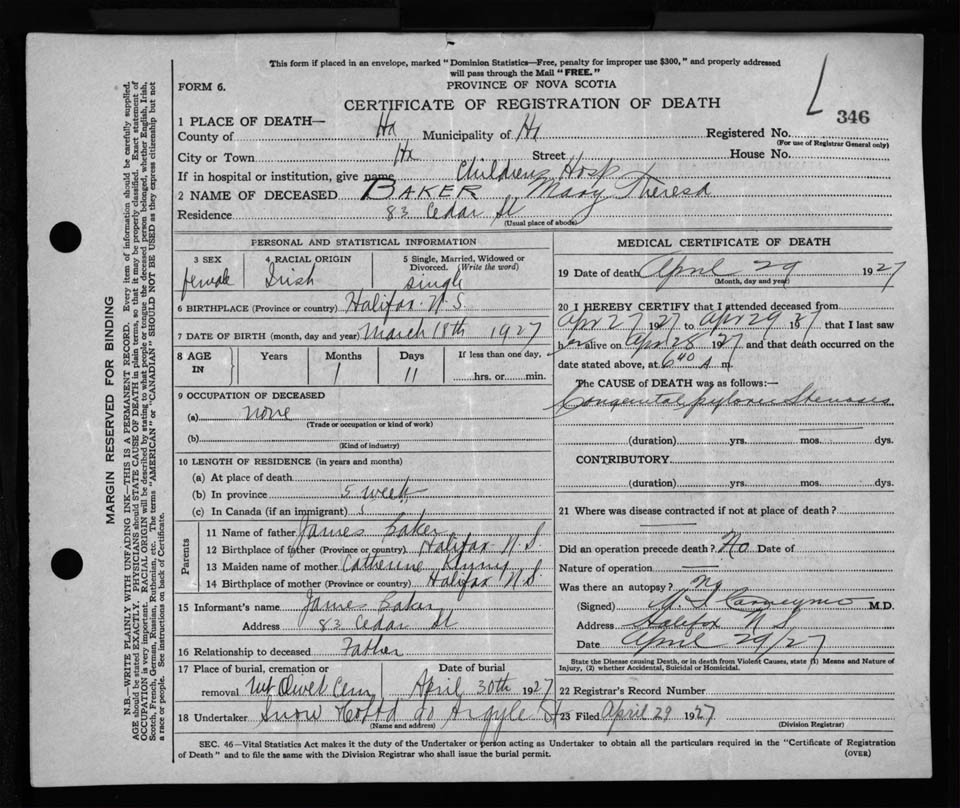 This form if placed in an envelope, marked "Dominion Statistics—Free, penalty for improper use $300," and properly addressed
will pass through the Mail "FREE."
FORM 6.
PROVINCE OF NOVA SCOTIA
CERTIFICATE OF REGISTRATION OF DEATH
346
1 PLACE OF DEATH—
County of Hx Municipality of Hx Registered No.
(For use of Registrar General only)
City or Town Hx Street House No.
If in hospital or institution, give name Childrens Hosp
2 NAME OF DECEASED BAKER Mary Theresa
Residence 83 Cedar St
(Usual place of abode)
PERSONAL AND STATISTICAL INFORMATION
3 SEX female
4 RACIAL ORIGIN Irish
5 Single, Married, Widowed or Divorced. (Write the word) single
6 BIRTHPLACE (Province or country) Halifax N.S.
7 DATE OF BIRTH (month, day and year) March 18th 1927
8 AGE IN Years Months Days If less than one day,
1 11 hrs. or min.
9 OCCUPATION OF DECEASED
(a) none
(Trade or occupation or kind of work)
(b)
(Kind of industry)
10 LENGTH OF RESIDENCE (in years and months)
(a) At place of death
(b) In province 5 week
(c) In Canada (if an immigrant)
Parents
11 Name of father James Baker
12 Birthplace of father (Province or country) Halifax N.S.
13 Maiden name of mother Catherine
14 Birthplace of mother (Province or country) Halifax N.S.
15 Informant's name James Baker
Address 83 Cedar St
16 Relationship to deceased Father
17 Place of burial, cremation or removal Mt Olivet Cem
Date of burial April 30th 1927
18 Undertaker Snow Co Ltd 90 Argyle St
(Name and address)
MEDICAL CERTIFICATE OF DEATH
19 Date of death April 29 1927
(Month, day and year)
20 I HEREBY CERTIFY that I attended deceased from
Apr 27 1927 to Apr 29 1927 that I last saw
her alive on Apr 28 1927 and that death occurred on the
date stated above, at 6 40 A m.
The CAUSE of DEATH was as follows:—
Congenital pyloric Stenosis
(duration) yrs. mos. dys.
CONTRIBUTORY
(duration) yrs. mos. dys.
21 Where was disease contracted if not at place of death?
Did an operation precede death? No Date of
Nature of operation
Was there an autopsy? No
(Signed) M.D.
Address Halifax N S
Date April 29/27
State the Disease causing Death, or in death from Violent Causes, state (1) Means and Nature of
Injury, (2) whether Accidental, Suicidal or Homicidal.
22 Registrar's Record Number
23 Filed April 29 1927
(Division Registrar)
SEC. 46—Vital Statistics Act makes it the duty of the Undertaker or person acting as Undertaker to obtain all the particulars required in the "Certificate of Registration
of Death" and to file the same with the Division Registrar who shall issue the burial permit. (OVER)
MARGIN RESERVED FOR BINDING
N.B.—WRITE PLAINLY WITH UNFADING INK—THIS IS A PERMANENT RECORD. Every item of information should be carefully supplied.
AGE should be stated EXACTLY. PHYSICIANS should STATE CAUSE OF DEATH in plain terms, so that it may be properly classified. Exact statement of
OCCUPATION is very important. RACIAL ORIGIN will be described by stating to what people or tongue the deceased person belonged, whether English, Irish,
Scotch, French, German, Russian, Ruthenian, etc. The terms "AMERICAN" or "CANADIAN" SHOULD NOT BE USED as they express citizenship but not
a race or people. See instructions on back of Certificate.